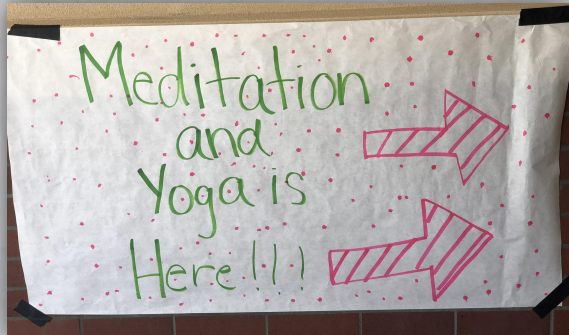 Meditation
and
Yoga is
Here!!!